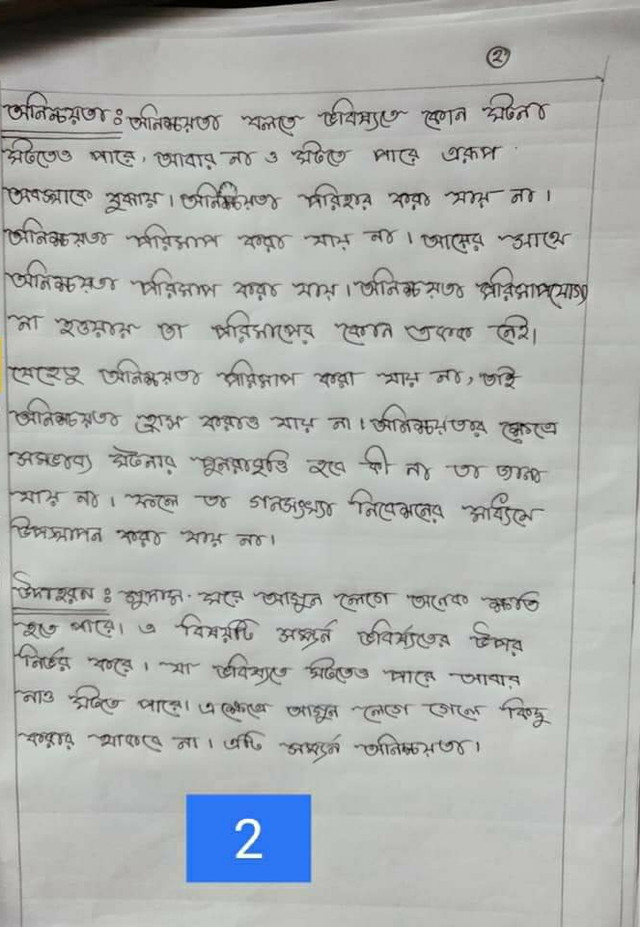 ২
অনিশ্চয়তা : অনিশ্চয়তা বলতে ভবিষ্যতে কোন ঘটনা
ঘটতেও পারে, আবার না ও ঘটতে পারে এরূপ
অবস্থাকে বুঝায়। অনিশ্চিয়তা পরিহার করা যায় না।
অনিশ্চয়তা পরিমাপ করা যায় না। আয়ের সাথে
অনিশ্চয়তা পরিমাপ করা যায়। অনিশ্চয়তা পরিমাপযোগ্য
না হওয়ায় তা পরিমাপের কোন একক নেই।
যেহেতু অনিশ্চয়তা পরিমাপ করা যায় না, তাই
অনিশ্চয়তা হ্রাস করাও যায় না। অনিশ্চয়তার ক্ষেত্রে
সম্ভাব্য ঘটনার পুনরাবৃত্তি হবে কী না তা জানা
যায় না। ফলে তা গনসংখ্যা নিবেশনের মাধ্যমে
উপস্থাপন করা যায় না।
উদাহরন : গুদাম ঘরে আগুন লেগে অনেক ক্ষতি
হতে পারে। এ বিষয়টি সম্পূর্ন ভবিষ্যতের উপর
নির্ভর করে। যা ভবিষ্যতে ঘটতেও পারে আবার
নাও ঘটতে পারে। এক্ষেত্রে আগুন লেগে গেলে কিছু
করার থাকবে না। এটি সম্পূর্ন অনিশ্চয়তা।
2